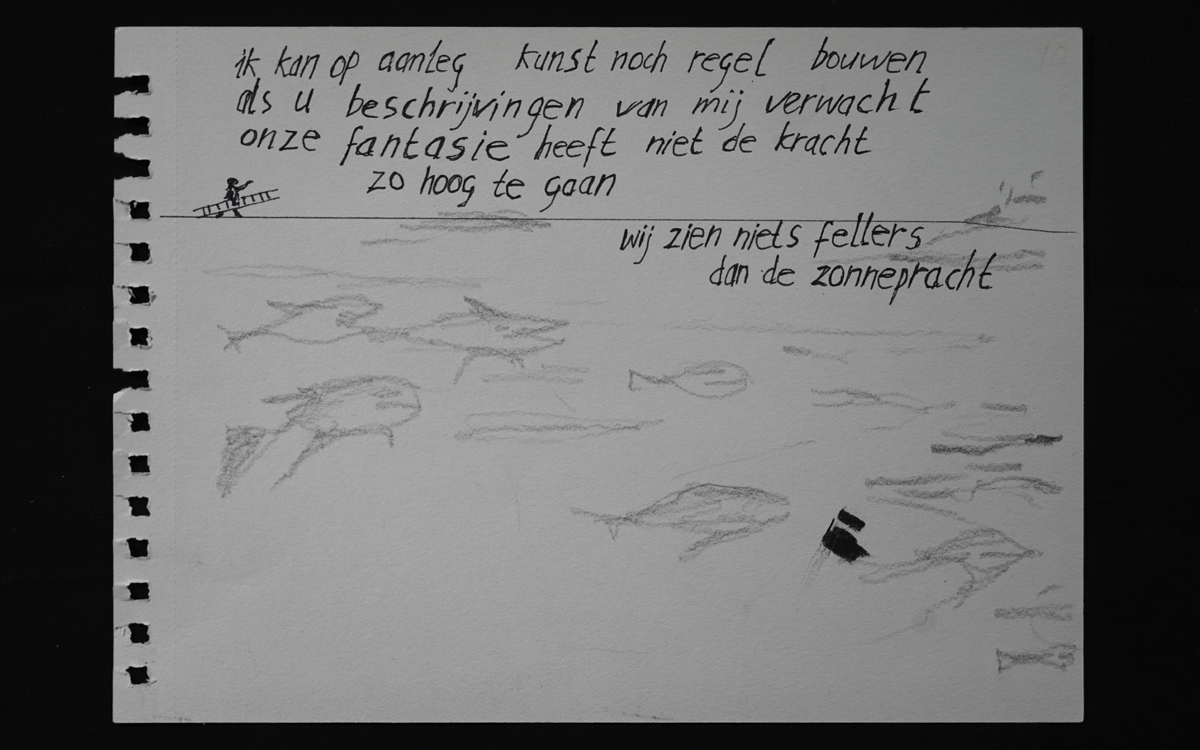 ik kan op aanleg kunst noch regel bouwen
als u beschrijvingen van mij verwacht
onze fantasie heeft niet de kracht
zo hoog te gaan
wij zien niets fellers
dan de zonnepracht